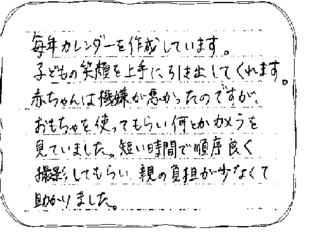 毎年カレンダーを作成しています。
子どもの笑顔を上手に引き出してくれます。
赤ちゃんは機嫌が悪かったのですが、
おもちゃを使ってもらい何とかカメラを
見ていました。短い時間で順序良く
撮影してもらい、親の負担が少なくて
助かりました。